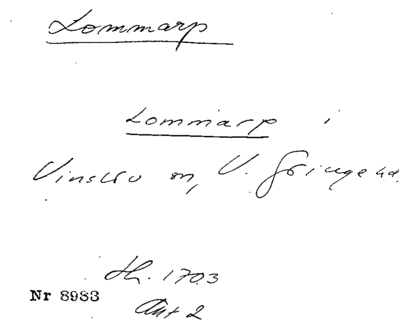 Lommarp
Lommarp i
Vinslöv sn, V. Göinge hd.
Jb. 1703
Nr 8983
Ant 2